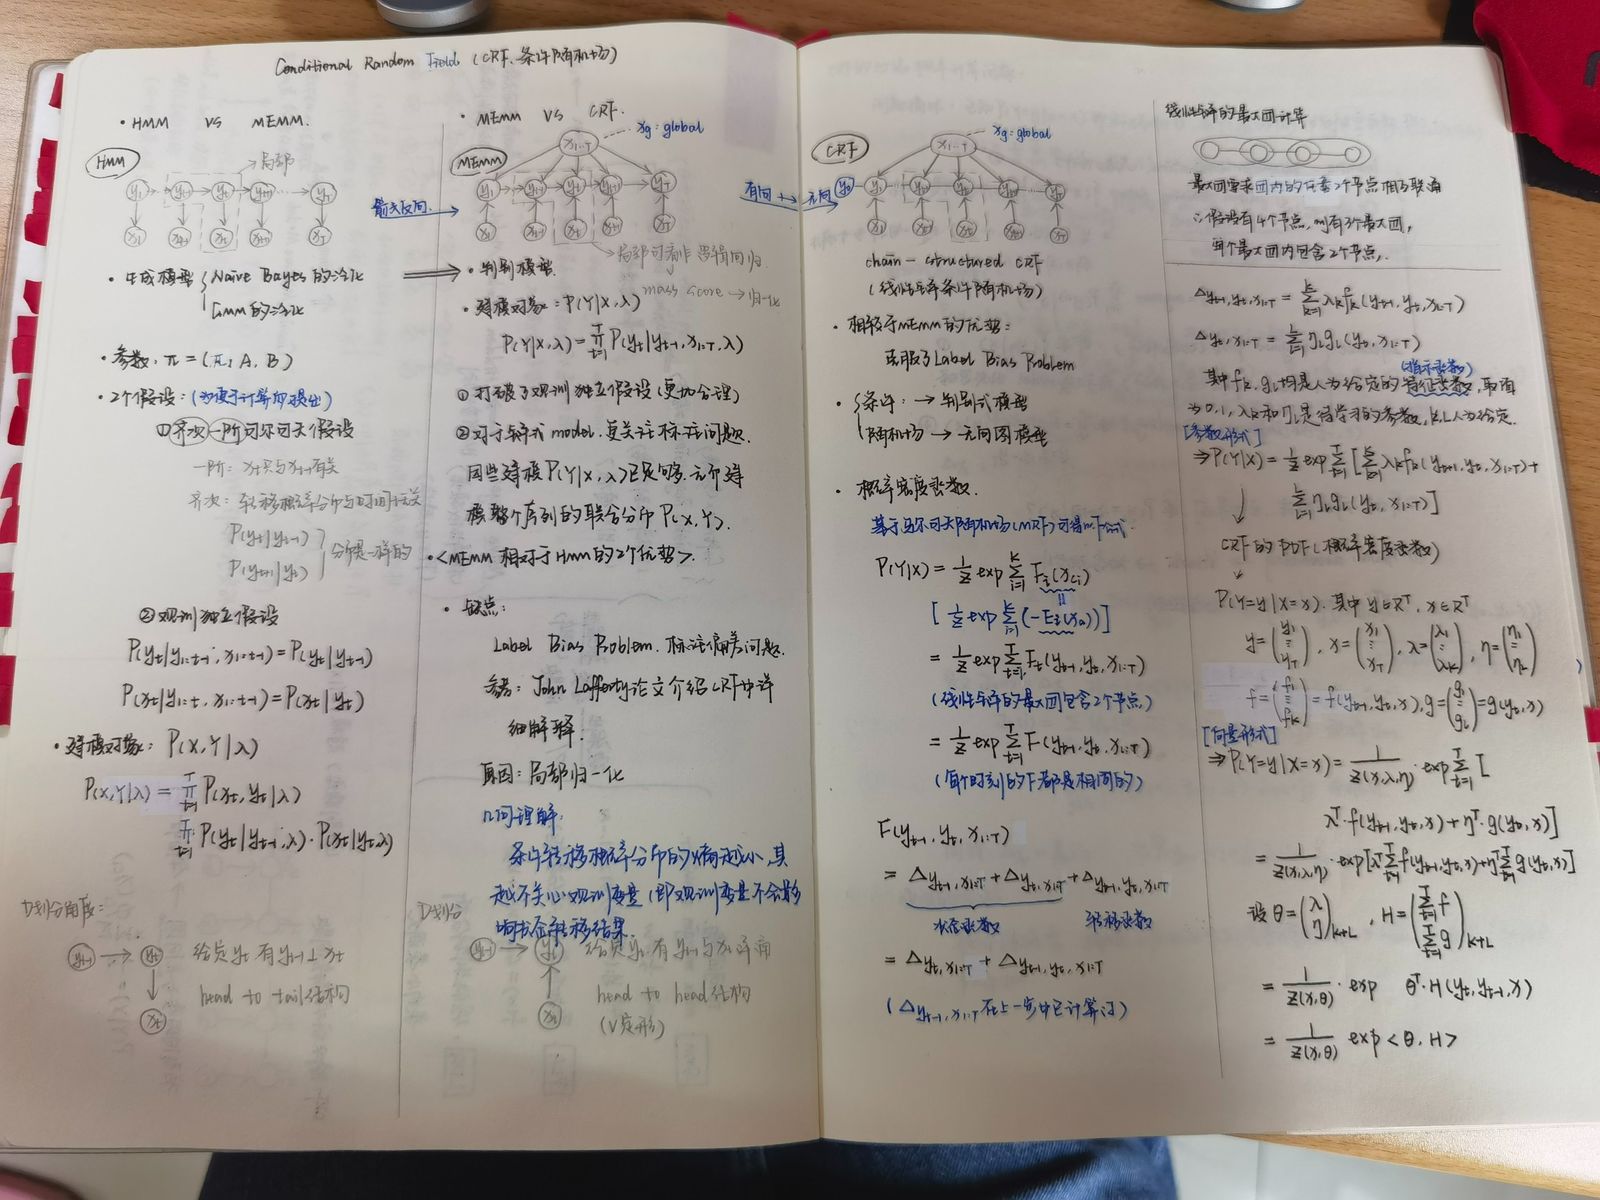 Conditional Random Field (CRF, 条件随机场)
• HMM VS MEMM.
HMM
→局部
y₁ yₜ₋₁ yₜ yₜ₊₁ y_T
x₁ xₜ₋₁ xₜ xₜ₊₁ x_T
• 生成模型 { Naive Bayes 的泛化
GMM 的泛化
• 参数: π = (π, A, B)
• 2个假设: (为便于计算而提出)
① 齐次一阶马尔可夫假设
一阶: yₜ只与yₜ₋₁有关
齐次: 转移概率分布与时间t无关
P(yₜ|yₜ₋₁)
P(yₜ₊₁|yₜ)
} 分布是一样的
② 观测独立假设
P(yₜ|y₁:ₜ₋₁, x₁:ₜ₋₁) = P(yₜ|yₜ₋₁)
P(xₜ|y₁:ₜ, x₁:ₜ₋₁) = P(xₜ|yₜ)
• 建模对象: P(X,Y|λ)
P(X,Y|λ) = ∏ₜ₌₁ᵀ P(xₜ, yₜ|λ)
∏ₜ₌₁ᵀ P(yₜ|yₜ₋₁, λ)·P(xₜ|yₜ,λ)
D划分角度:
yₜ₋₁ → yₜ
xₜ
给定 yₜ 有 yₜ₋₁ ⊥ xₜ
head to tail 结构
• MEMM VS CRF.
MEMM
x₁…T
xg: global
箭头反向.
y₁ yₜ₋₁ yₜ yₜ₊₁ y_T
x₁ xₜ₋₁ xₜ xₜ₊₁ x_T
→局部可看作逻辑回归
mass score → 归一化
• 判别模型
• 建模对象: P(Y|X,λ)
P(Y|X,λ) = ∏ₜ₌₁ᵀ P(yₜ|yₜ₋₁, x₁:T, λ)
① 打破了观测独立假设 (更加合理)
② 对于 model, 更关注标注问题.
因此建模 P(Y|X,λ) 已足够, 无需建
模整个序列的联合分布 P(X,Y).
• <MEMM 相对于 HMM 的2个优势>.
• 缺点:
Label Bias Problem. 标注偏差问题.
参考: John Lafferty论文介绍CRF中详
细解释.
原因: 局部归一化
几何理解:
条件转移概率分布的熵越小, 其
越不关心观测变量 (即观测变量不会影
响转移结果.
D划分
yₜ₋₁ → yₜ
xₜ
给定 yₜ 有 yₜ₋₁ 与 xₜ 连通
head to head 结构
(V字形)
有向 → 无向
CRF
x₁…T
xg: global
y₀ y₁ yₜ₋₁ yₜ yₜ₊₁ y_T
x₁ xₜ₋₁ xₜ xₜ₊₁ x_T
chain-structured CRF
(线性链条件随机场)
• 相较于MEMM的优势:
克服了 Label Bias Problem
• { 条件: → 判别式模型
随机场 → 无向图模型
• 概率密度函数.
基于马尔可夫随机场(MRF)可得如下公式.
P(Y|X) = 1/Z exp ∑ᵢ₌₁ᴷ Fᵢ(x_cᵢ)
[ 1/Z exp ∑ᵢ₌₁ᴷ (-Eᵢ(x_cᵢ)) ]
= 1/Z exp ∑ₜ₌₁ᵀ Fₜ(yₜ₋₁, yₜ, x₁:T)
(线性链的最大团包含2个节点)
= 1/Z exp ∑ₜ₌₁ᵀ F(yₜ₋₁, yₜ, x₁:T)
(每个时刻的F都是相同的)
F(yₜ₋₁, yₜ, x₁:T)
= △yₜ₋₁,x₁:T + △yₜ,x₁:T + △yₜ₋₁,yₜ,x₁:T
状态函数 转移函数
= △yₜ,x₁:T + △yₜ₋₁,yₜ,x₁:T
(△yₜ₋₁,x₁:T 在上一步中已计算过)
线性链的最大团计算
最大团要求团内的任意2个节点相互联通
∴假设有4个节点, 则有3个最大团,
每个最大团内包含2个节点.
△yₜ₋₁,yₜ,x₁:T = ∑ₖ₌₁ᴷ λₖfₖ(yₜ₋₁, yₜ, x₁:T)
△yₜ,x₁:T = ∑ₗ₌₁ᴸ ηₗgₗ(yₜ, x₁:T)
(指示函数)
其中 fₖ, gₗ 均是人为给定的特征函数, 取值
为 0,1, λₖ和ηₗ是待学习的参数, K,L人为给定.
[参数形式]
⇒ P(Y|X) = 1/Z exp ∑ₜ₌₁ᵀ [∑ₖ₌₁ᴷ λₖfₖ(yₜ₋₁, yₜ, x₁:T) +
∑ₗ₌₁ᴸ ηₗgₗ(yₜ, x₁:T)]
CRF 的 PDF (概率密度函数)
P(Y=y|X=x). 其中 y∈Rᵀ, x∈Rᵀ
y = (y₁ ⋮ y_T), x = (x₁ ⋮ x_T), λ = (λ₁ ⋮ λ_K), η = (η₁ ⋮ η_L)
f = (f₁ ⋮ f_K) = f(yₜ₋₁, yₜ, x), g = (g₁ ⋮ g_L) = g(yₜ, x)
[向量形式]
⇒ P(Y=y|X=x) = 1/Z(x,λ,η) · exp ∑ₜ₌₁ᵀ [
λᵀ·f(yₜ₋₁, yₜ, x) + ηᵀ·g(yₜ, x)]
= 1/Z(x,λ,η) · exp[λᵀ∑ₜ₌₁ᵀ f(yₜ₋₁, yₜ, x) + ηᵀ∑ₜ₌₁ᵀ g(yₜ, x)]
设 θ = (λ η)_K+L , H = (∑ₜ₌₁ᵀ f ∑ₜ₌₁ᵀ g)_K+L
= 1/Z(x,θ) · exp θᵀ·H(yₜ, yₜ₋₁, x)
= 1/Z(x,θ) exp <θ, H>